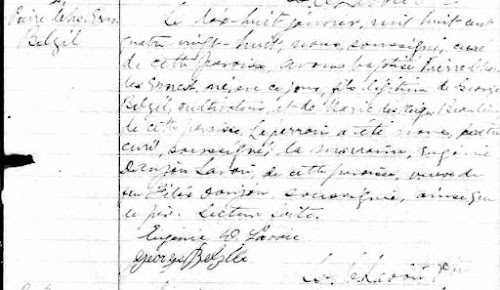 Belzil
Le dix-huit janvier, mil huit cent
quatre-vingt-huit, nous, soussigné, curé
de cette paroisse, avons baptisé Pierre Char
les Ernest, né, en ce jour, fils légitime de George
Belzil, cultivateur, et de Marie des Neiges Beaulieu
de cette paroisse. Le parrain a été nous, 
curé, soussigné; la marraine, Eugénie
Danjou Lavoie, de cette paroisse, veuve de
feu Danjou, soussignée, ainsi que
le père. Lecture faite.
Eugénie D. Lavoie
George Belzile